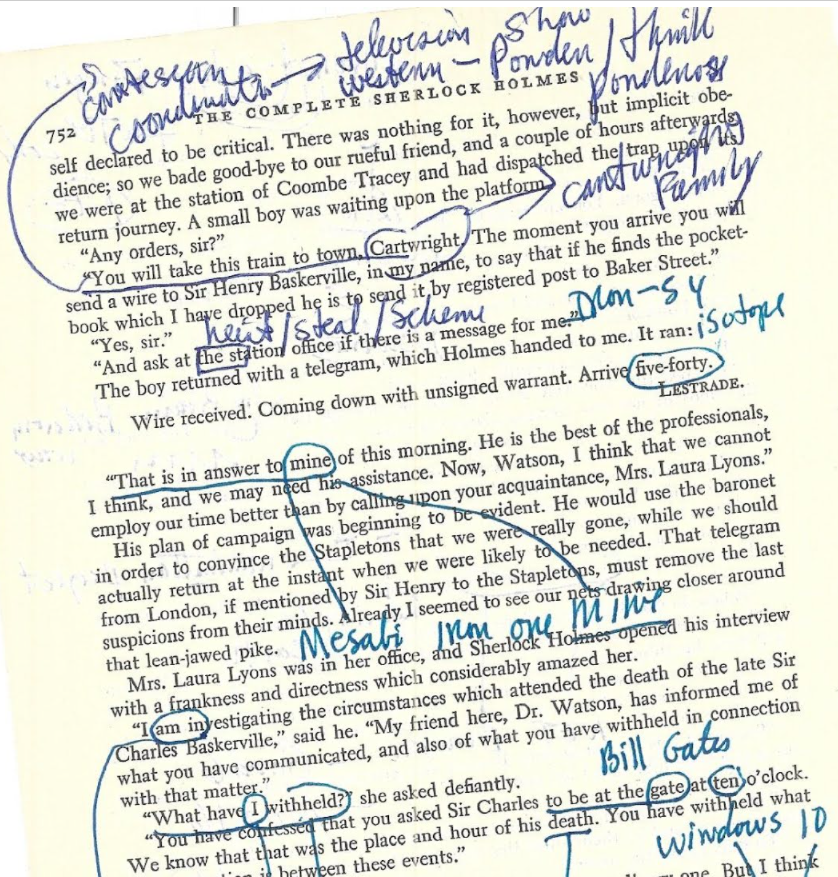 cartesian
coordinate → television show
western – Powder / thrill
ponderosa
THE COMPLETE SHERLOCK HOLMES
752
self declared to be critical. There was nothing for it, however, but implicit obe-
dience; so we bade good-bye to our rueful friend, and a couple of hours afterwards
we were at the station of Coombe Tracey and had dispatched the trap upon its
return journey. A small boy was waiting upon the platform.
cartwright
Family
"Any orders, sir?"
"You will take this train to town, Cartwright. The moment you arrive you will
send a wire to Sir Henry Baskerville, in my name, to say that if he finds the pocket-
book which I have dropped he is to send it by registered post to Baker Street."
"Yes, sir."
heist/steal/scheme
Iron-54
isotope
"And ask at the station office if there is a message for me."
The boy returned with a telegram, which Holmes handed to me. It ran:
Wire received. Coming down with unsigned warrant. Arrive five-forty.
LESTRADE.
"That is in answer to mine of this morning. He is the best of the professionals,
I think, and we may need his assistance. Now, Watson, I think that we cannot
employ our time better than by calling upon your acquaintance, Mrs. Laura Lyons."
His plan of campaign was beginning to be evident. He would use the baronet
in order to convince the Stapletons that we were really gone, while we should
actually return at the instant when we were likely to be needed. That telegram
from London, if mentioned by Sir Henry to the Stapletons, must remove the last
suspicions from their minds. Already I seemed to see our nets drawing closer around
that lean-jawed pike.
Mesabi Iron ore Mine
Mrs. Laura Lyons was in her office, and Sherlock Holmes opened his interview
with a frankness and directness which considerably amazed her.
"I am investigating the circumstances which attended the death of the late Sir
Charles Baskerville," said he. "My friend here, Dr. Watson, has informed me of
what you have communicated, and also of what you have withheld in connection
with that matter."
Bill Gates
"What have I withheld?" she asked defiantly.
"You have confessed that you asked Sir Charles to be at the gate at ten o'clock.
We know that that was the place and hour of his death. You have withheld what
windows 10
is between these events."
one. But I think